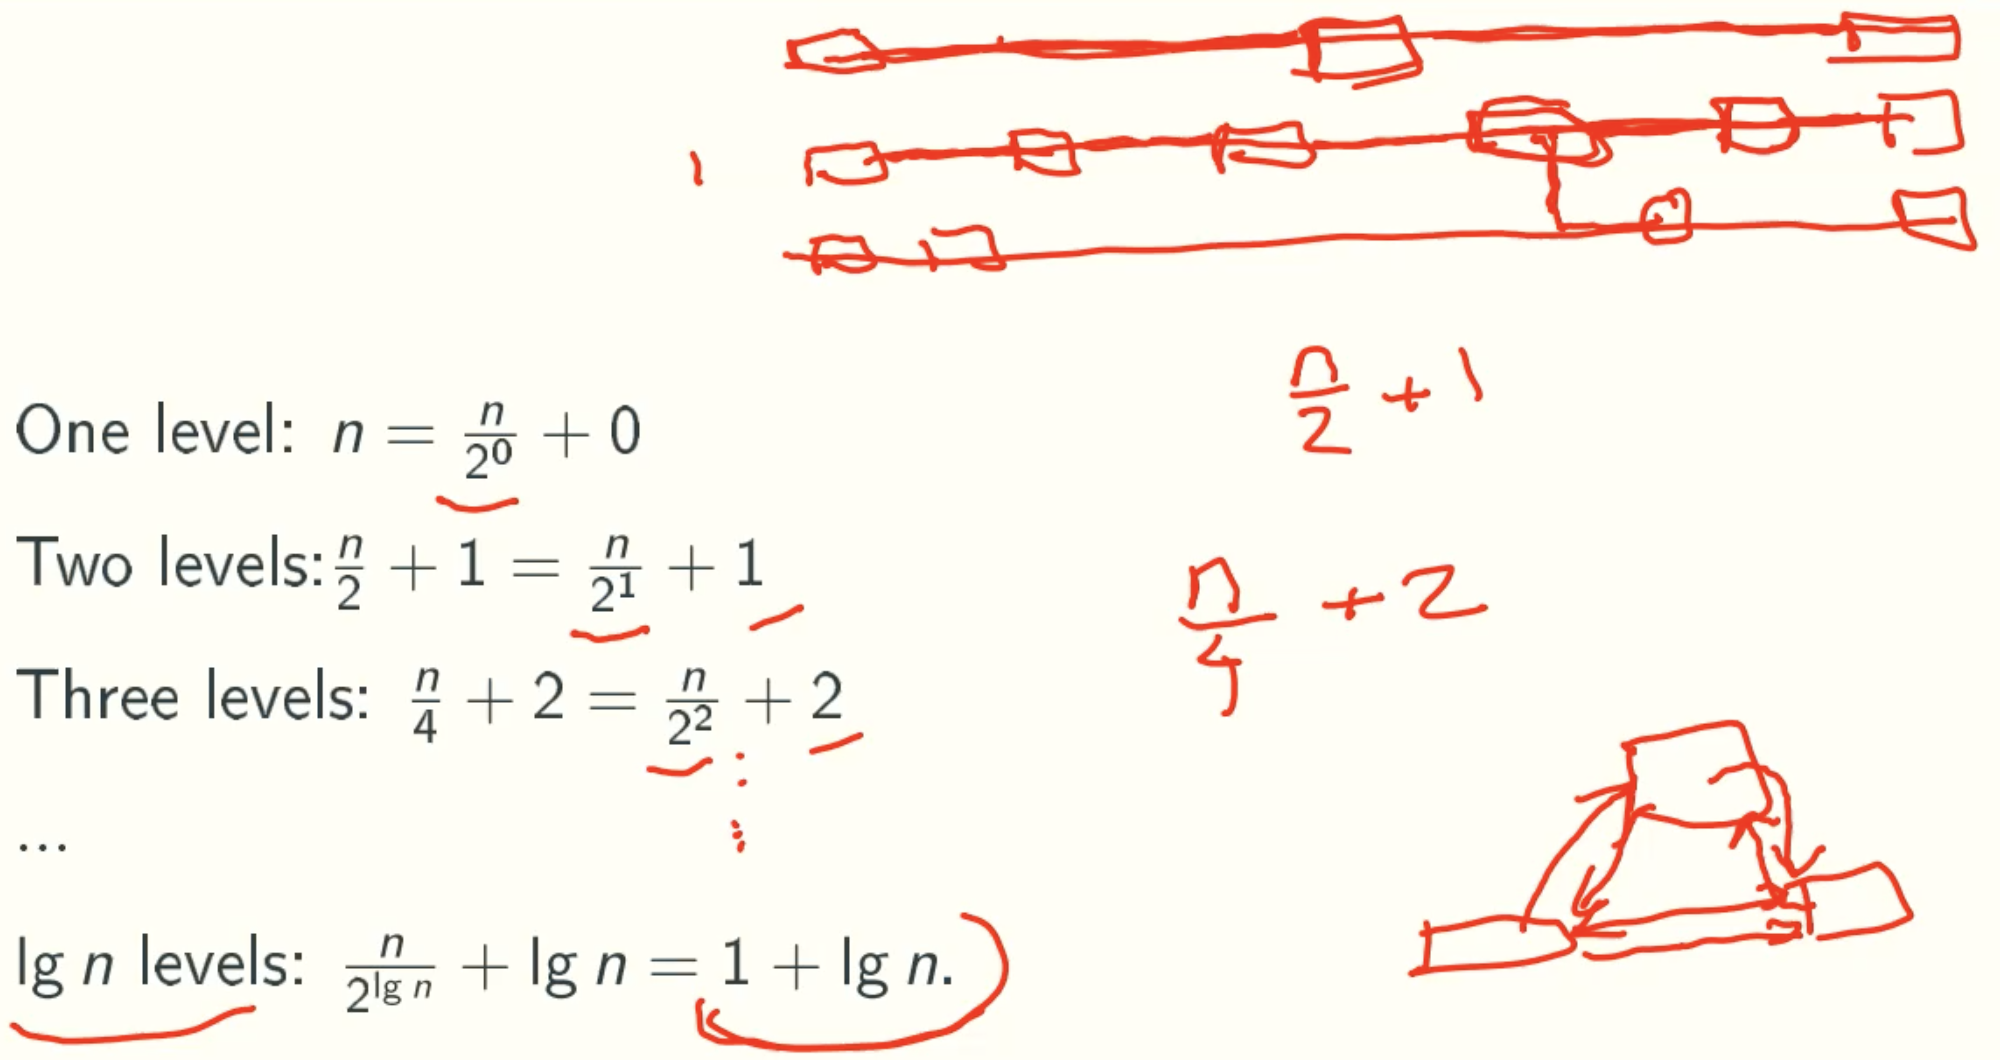 1
n/2 + 1
One level: n = n/2^0 + 0
Two levels: n/2 + 1 = n/2^1 + 1
n/4 + 2
Three levels: n/4 + 2 = n/2^2 + 2
...
lg n levels: n/2^{lg n} + lg n = 1 + lg n.